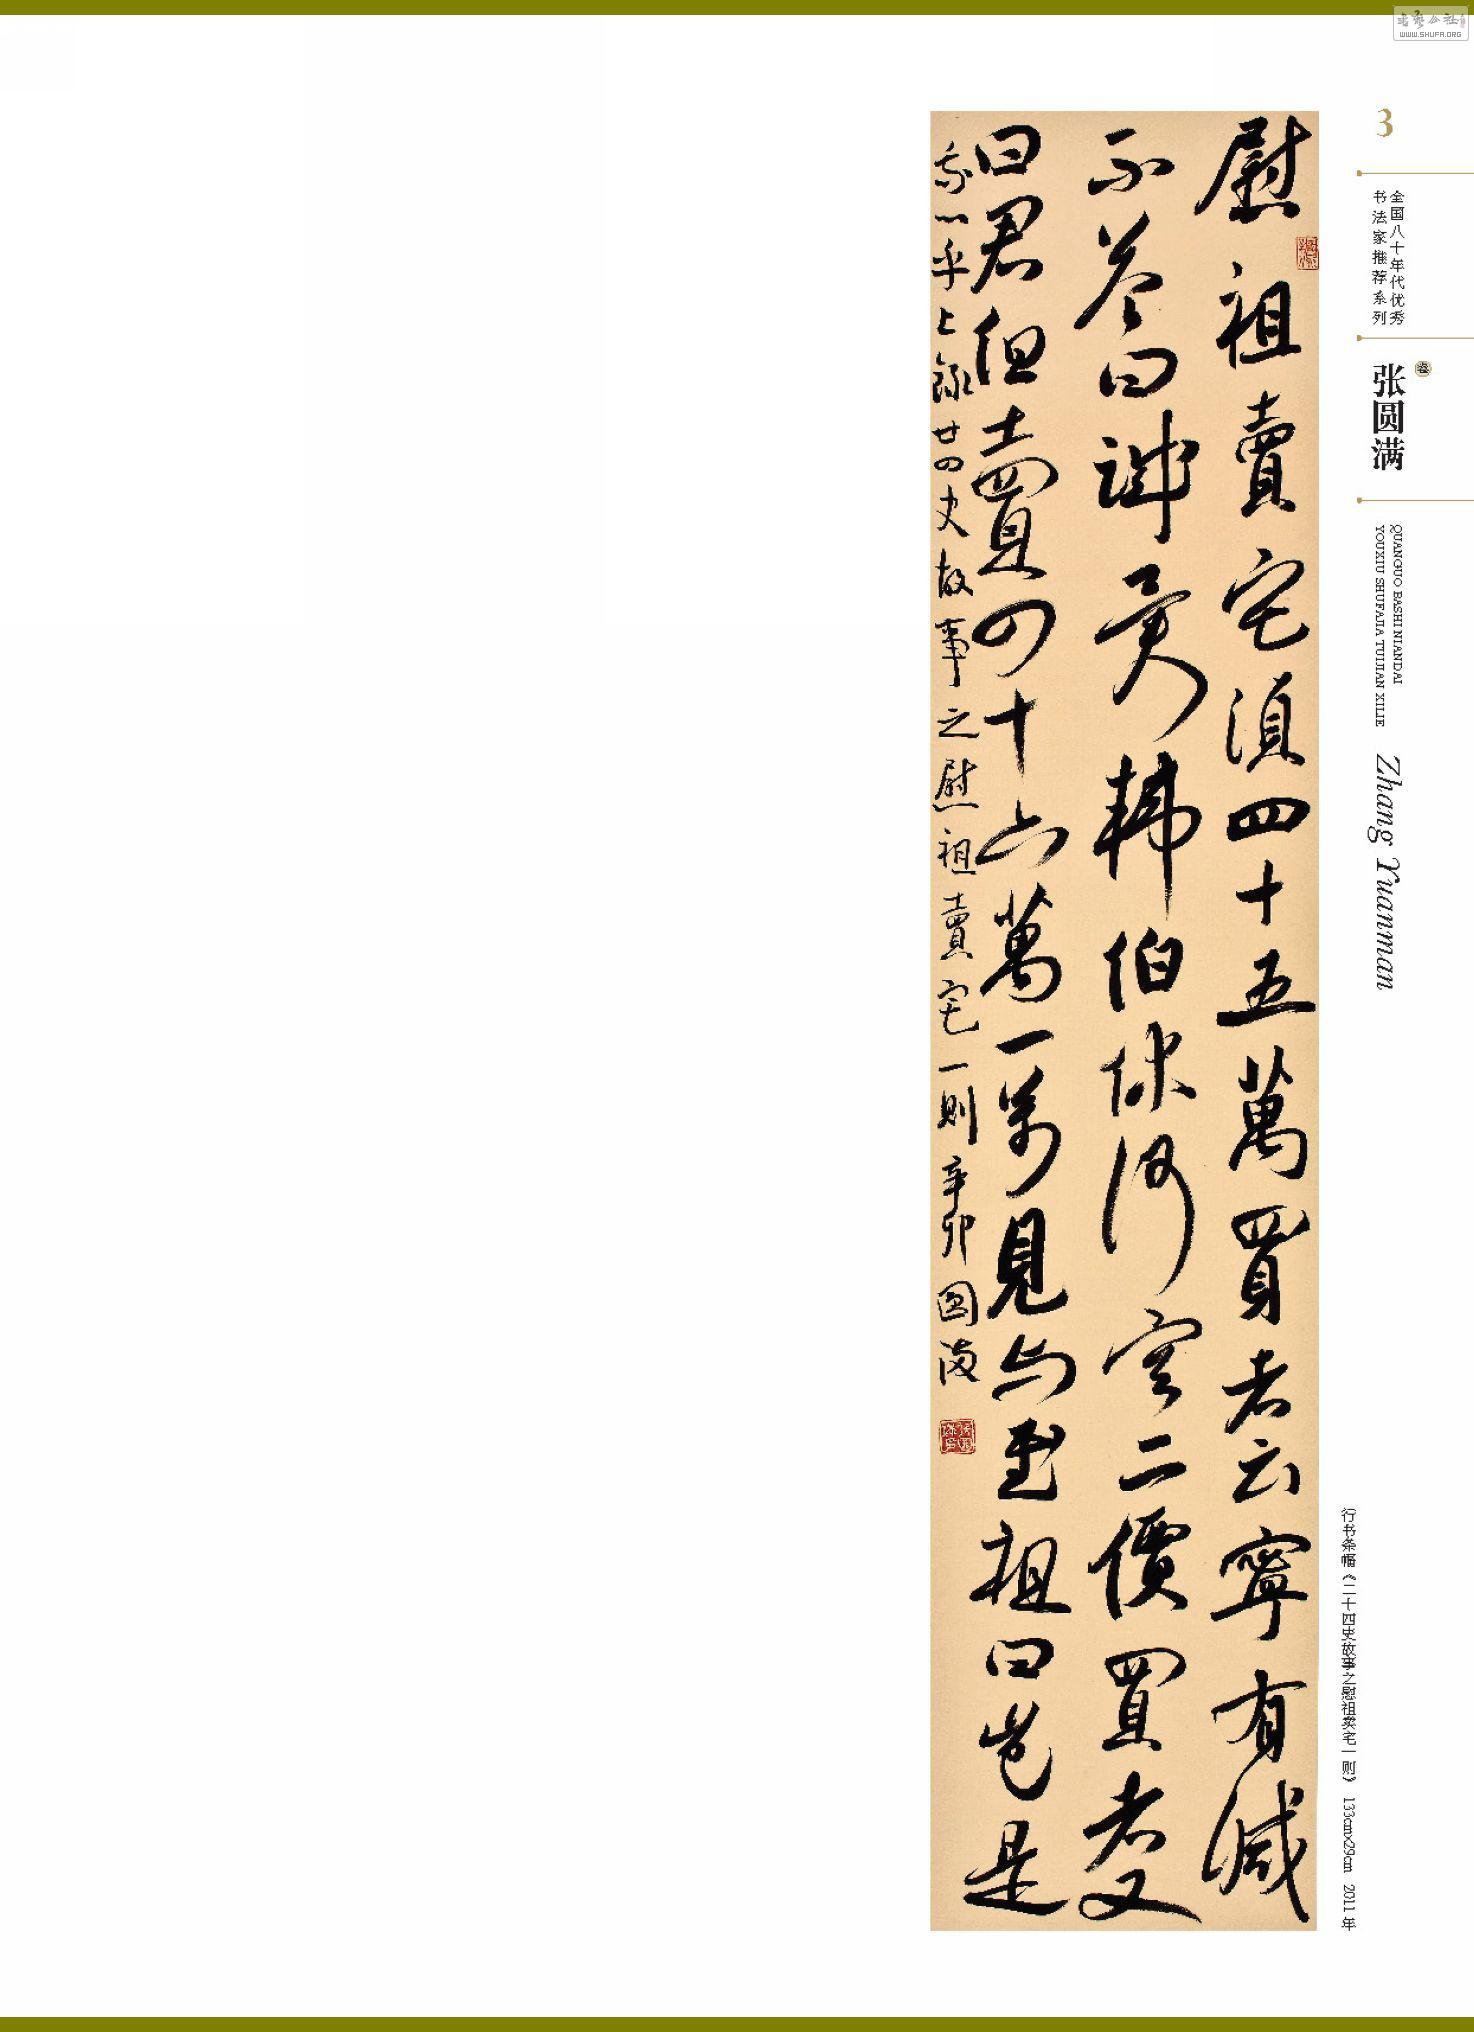 3
全国八十年代优秀
书法家推荐系列
张圆满
卷
QUANGUO BASHI NIANDAI
YOUXIU SHUFAJIA TUIJIAN XILIE
Zhang Yuanman
慰祖賣宅須四十五萬買者云寧有減
不答曰誠異韓伯休何容二價買者又
曰君但賣四十六萬一萬見与慰祖曰豈是
我心乎上錄廿四史故事之慰祖賣宅一則辛卯圓滿
行书条幅《二十四史故事之慰祖卖宅一则》 133cm×29cm 2011年
WWW.SHUFA.ORG